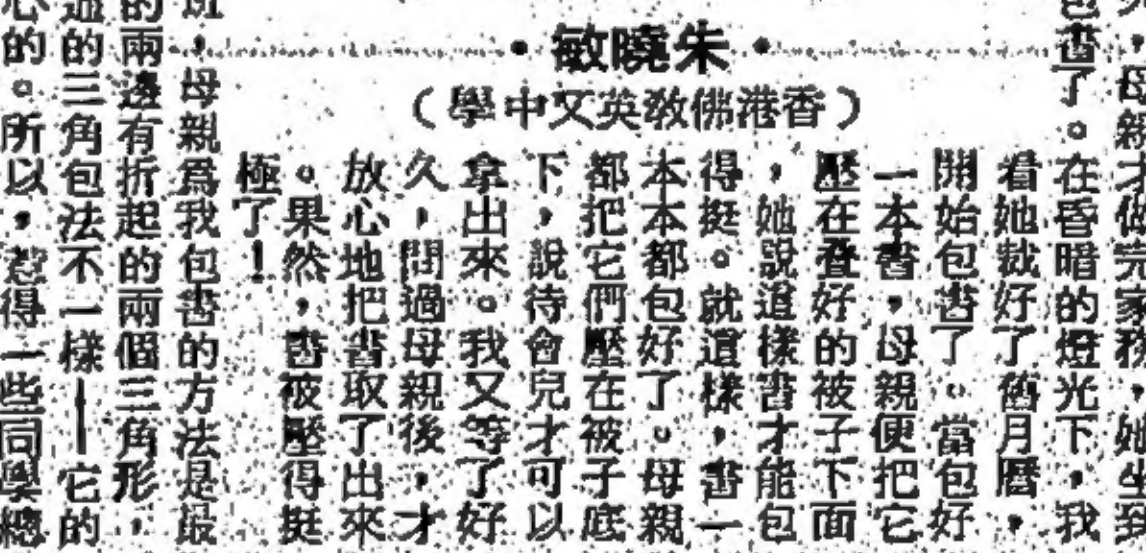 母親才做完家務，她坐到
書了。在昏暗的燈光下，我
看她裁好了舊月曆，
開始包書了。當包好
一本書，母親便把它
壓在疊好的被子下面
，她說這樣書才能包
得挺。就這樣，書一
本本都包好了。母親
都把它們壓在被子底
下，說待會兒才可以
拿出來。我又等了好
久，問過母親後，才
放心地把書取了出來
。果然，書被壓得挺
極了！
・朱曉敏・
（香港佛敎英文中學）
，母親爲我包書的方法是最
的兩邊有折起的兩個三角形，
通的三角包法不一樣——它的
心的。所以，惹得一些同學總